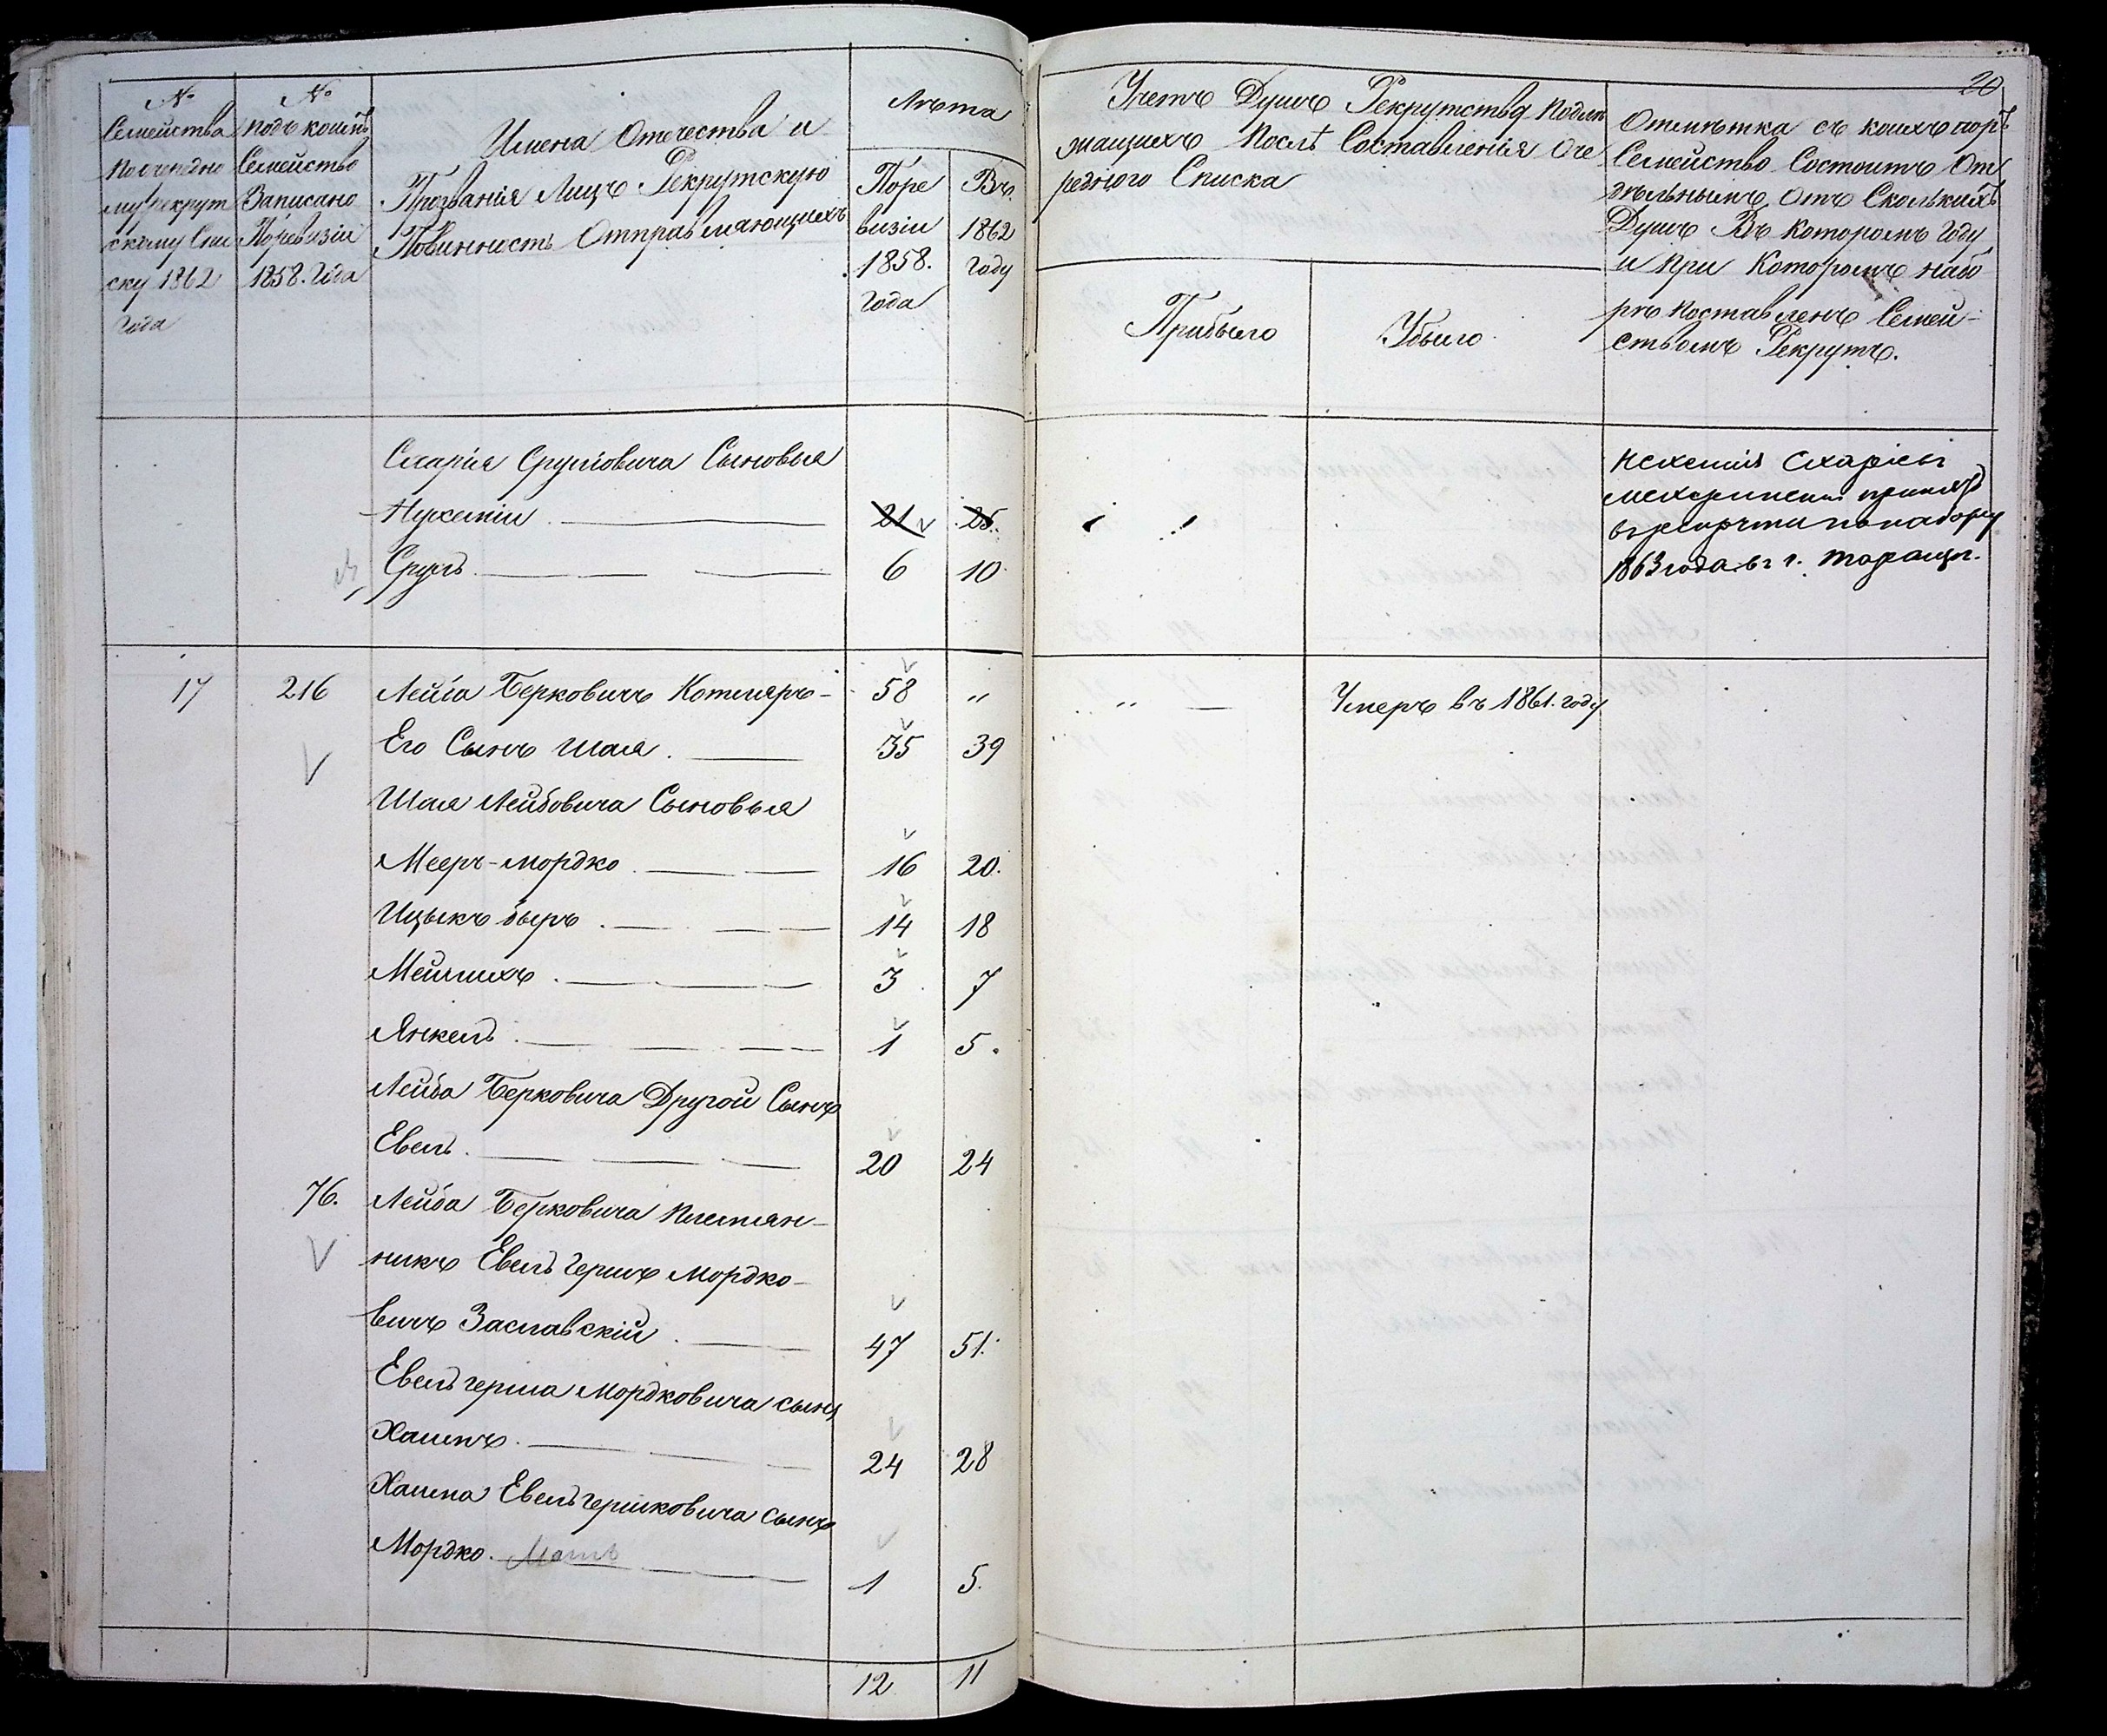 20
№
Семейства
по очередно
му рекрут
скому Спи
ску 1862
Года
№
Подъ коимъ
Семейство
Записано
По ревизіи
1858. Года
Имена Отечества и
Прозванія Лицъ Рекрутскую
Повинность Отправляющихъ
Лѣта
По ре
визіи
1858.
Года
Въ
1862
Году
Учетъ Душъ Рекрутства Подле
жащихъ Послѣ Составленія Оче
реднаго Списка
Прибыло
Убыло
Отмѣтка съ коихъ поръ
Семейство Состоитъ От
дѣльнымъ, Отъ Сколькихъ
Душъ Въ Которомъ Году
и При Которомъ набо
рѣ поставленъ Семей-
ствомъ Рекрутъ.
Сруліовича Сыновья
21 25.
Сруль 6 10
принятъ
въ рекруты по набору
1863 года въ г. Таращи.
17 216 Лейба Берковичъ Котляръ - 58 " " — Умеръ въ 1861. году
Его Сынъ Шая. — 35 39
Шая Лейбовича Сыновья
Мееръ-Мордко. — 16 20.
Ицыкъ Беръ. — 14 18
Мейлихъ. — 3 7
Янкель. — 1 5.
Лейба Берковича Другой Сынъ
Евель. — 20 24
76. Лейба Берковича племян-
никъ Евель Гершъ Мордко-
вичъ Заславскій. — 47 51.
Евель Герша Мордковича сынъ
Хаимъ. — 24 28
Хаима Евель Гершковича сынъ
Мордко. — 1 5.
12 11